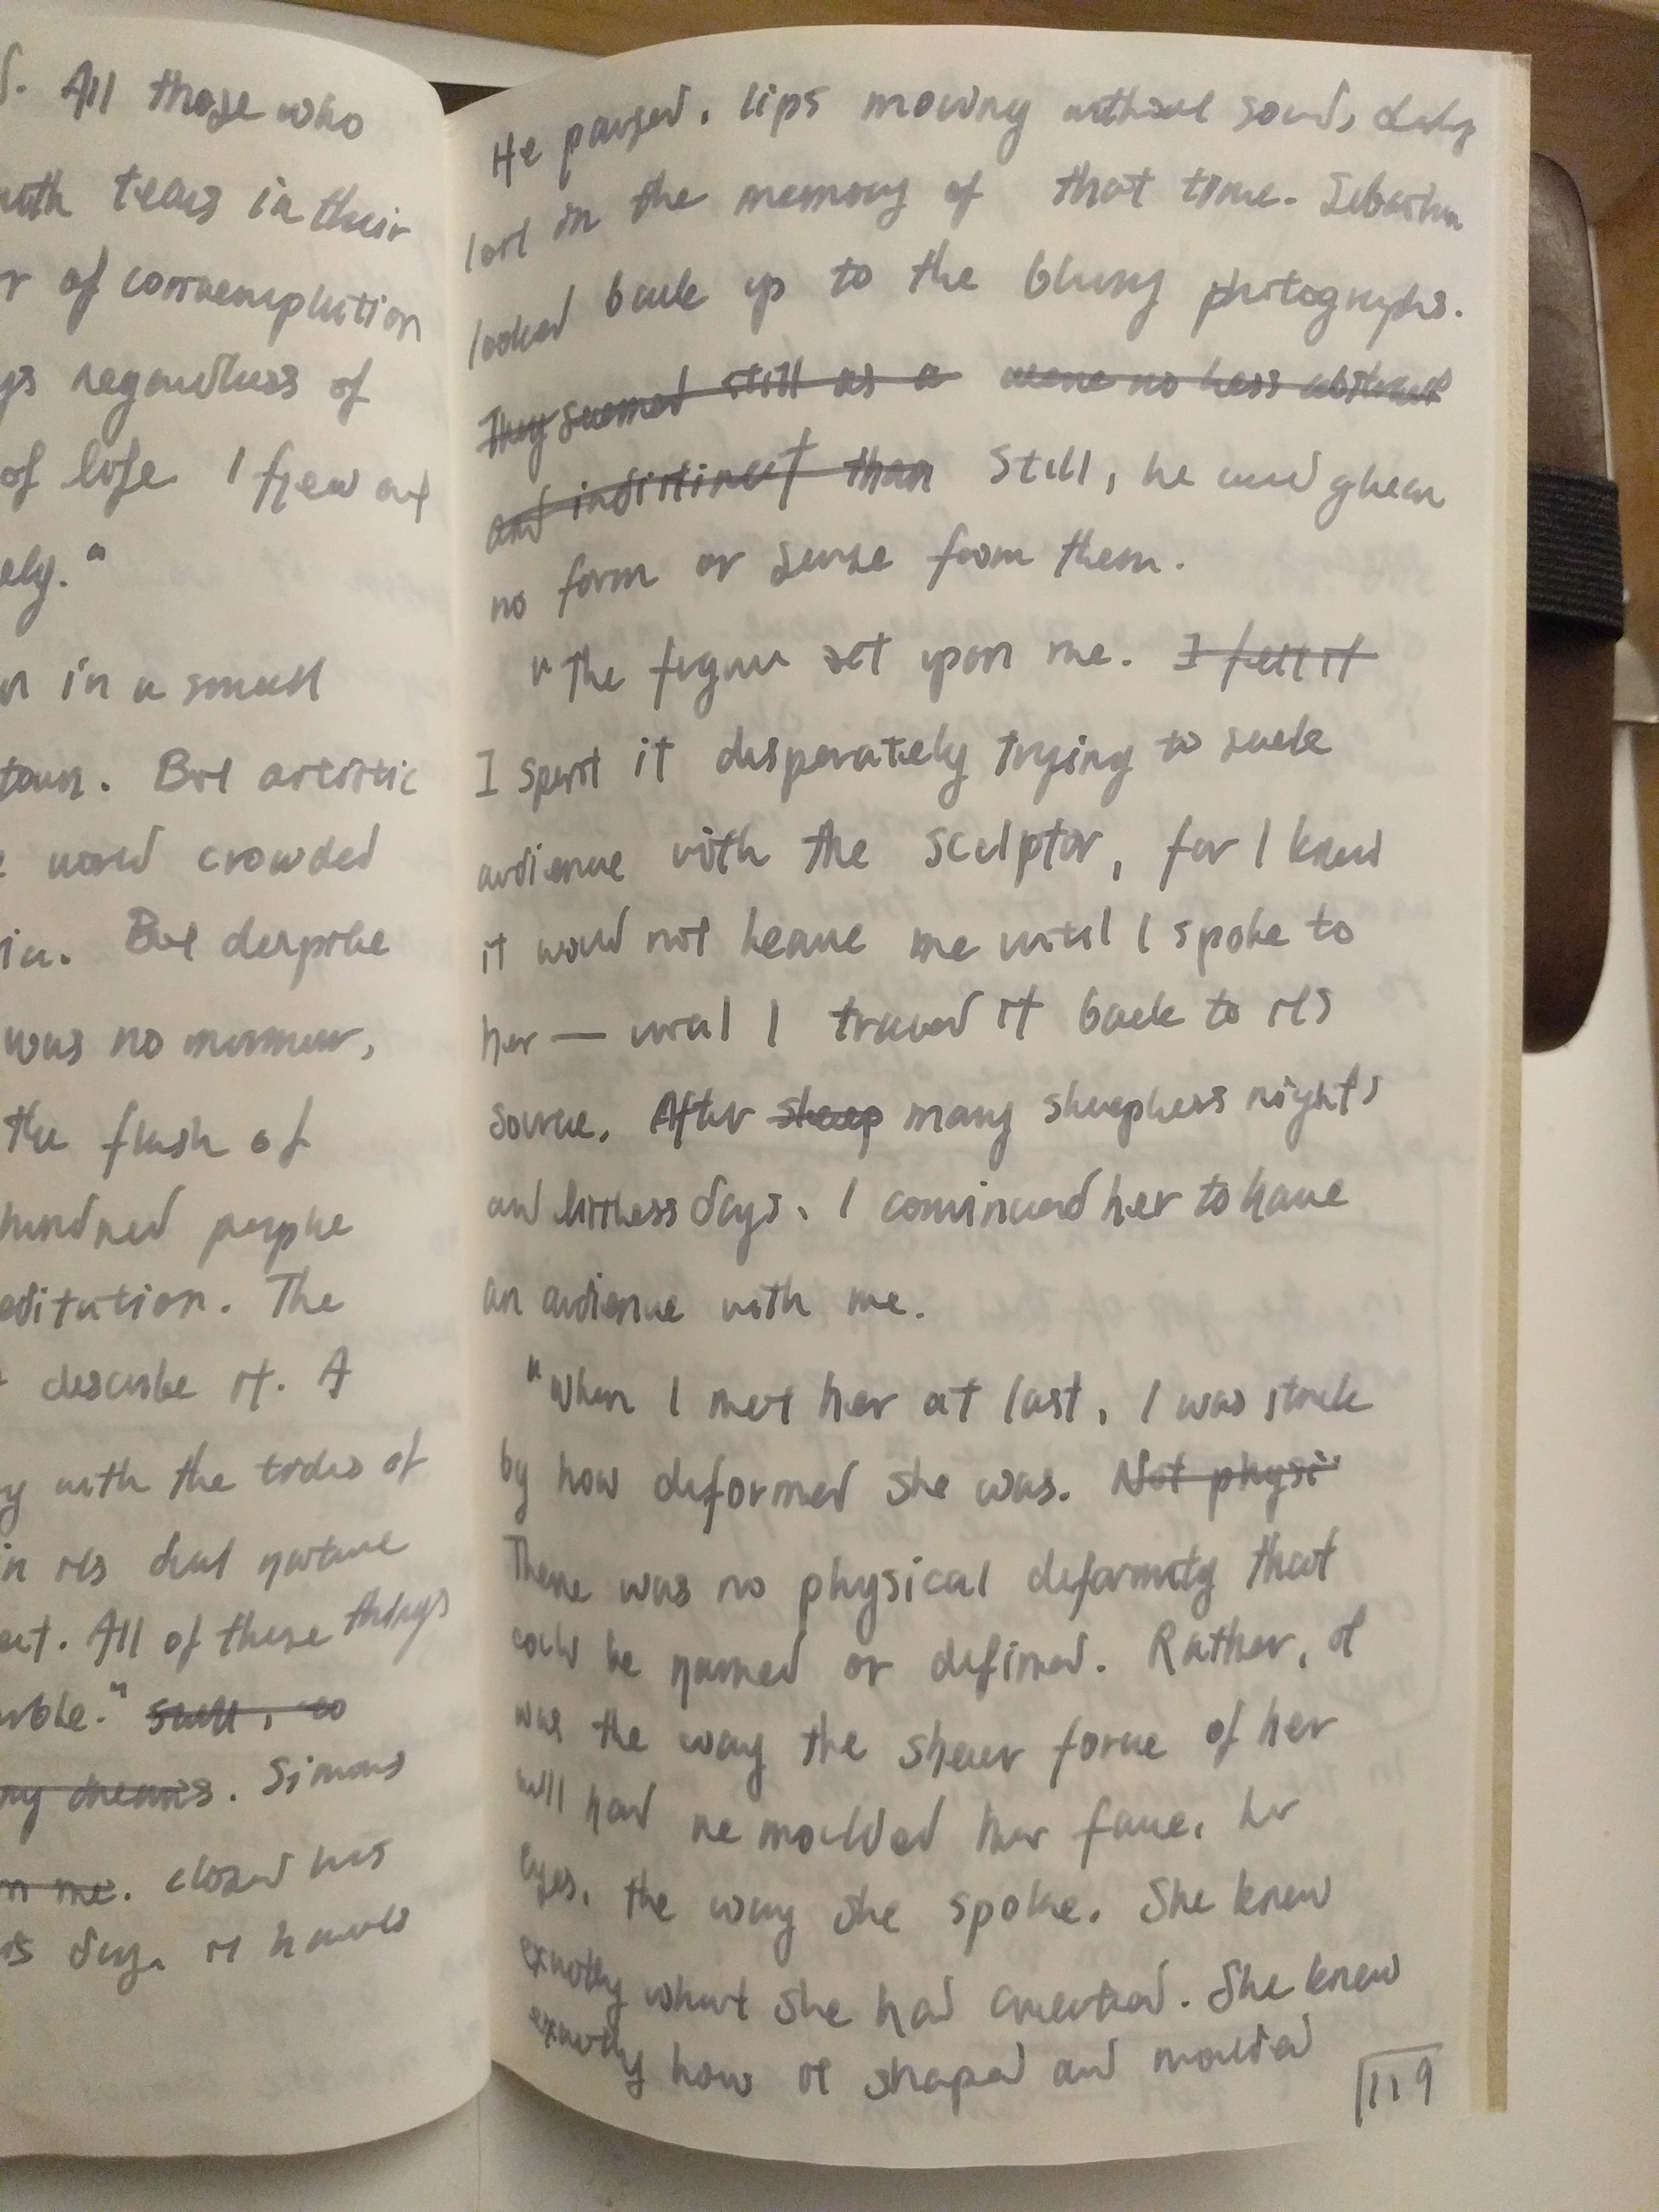 All those who
with tears in their
of contemplation
regardless of
of life I flew out
ely."
in a small
town. But artistic
world crowded
in. But despite
was no murmur,
the flash of
hundred people
editation. The
describe it. A
with the tides of
in its dual nature
All of these things
." still, so
dreams. Simons
me. closed his
day, it haunts
He paused, lips moving without sound,
lost in the memory of that time. Sebastian
looked back up to the blurry photographs.
They seemed still as a were no less abstract
and indistinct than Still, he could glean
no form or sense from them.
"The figure set upon me. I felt it
I spent it desperately trying to seek
audience with the sculptor, for I knew
it would not leave me until I spoke to
her — until I traced it back to its
source. After sleep many sleepless nights
and listless days, I convinced her to have
an audience with me.
"When I met her at last, I was struck
by how deformed she was. Not physi
There was no physical deformity that
could be named or defined. Rather, it
was the way the sheer force of her
will had remoulded her face, her
eyes, the way she spoke. She knew
exactly what she had created. She knew
exactly how it shaped and moulded
119